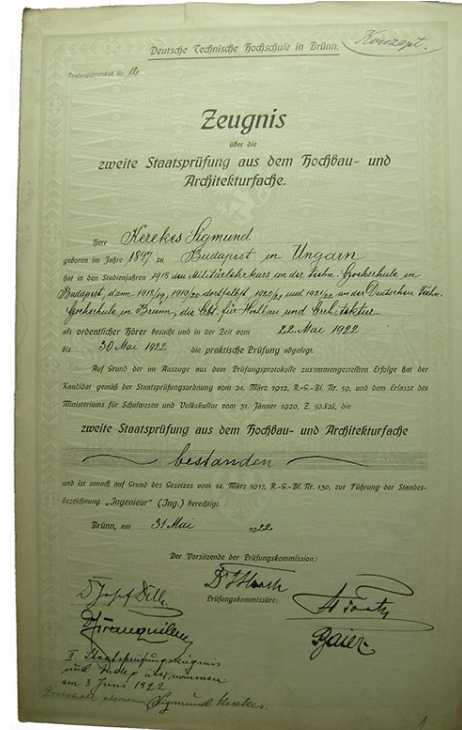 Deutsche Technische Hochschule in Brünn.
Konzept.
Prüfungsprotokoll Nr.
Zeugnis
über die
zweite Staatsprüfung aus dem Hochbau- und
Architekturfache.
Herr Kerekes Sigmund
geboren im Jahre 1897 zu Budapest in Ungarn
hat in den Studienjahren 1918 den Militärlehrkurs in der techn. Hochschule in
Budapest, dann 1918/19, 1919/20 dortselbst, 1920/21 und 1921/22 an der Deutschen techn.
Hochschule in Brünn, die Abt. für Hochbau und Architektur
als ordentlicher Hörer besucht und in der Zeit vom 22. Mai 1922
bis 30 Mai 1922 die praktische Prüfung abgelegt.
Auf Grund der im Auszuge aus dem Prüfungsprotokolle zusammengestellten Erfolge hat der
Kandidat gemäß der Staatsprüfungsordnung vom 24. März 1912, R.-G.-Bl. Nr. 59, und dem Erlasse des
Ministeriums für Schulwesen und Volkskultur vom 31. Jänner 1920, Z. 50.828, die
zweite Staatsprüfung aus dem Hochbau- und Architekturfache
bestanden
und ist sonach auf Grund des Gesetzes vom 14. März 1917, R.-G.-Bl. Nr. 130, zur Führung der Standes-
bezeichnung „Ingenieur" (Ing.) berechtigt.
Brünn, am 31 Mai 1922
Der Vorsitzende der Prüfungskommission:
Prüfungskommissäre:
II. Staatsprüfungszeugnis
und übernommen
am 3 Juni 1922
Sigmund Kerekes.